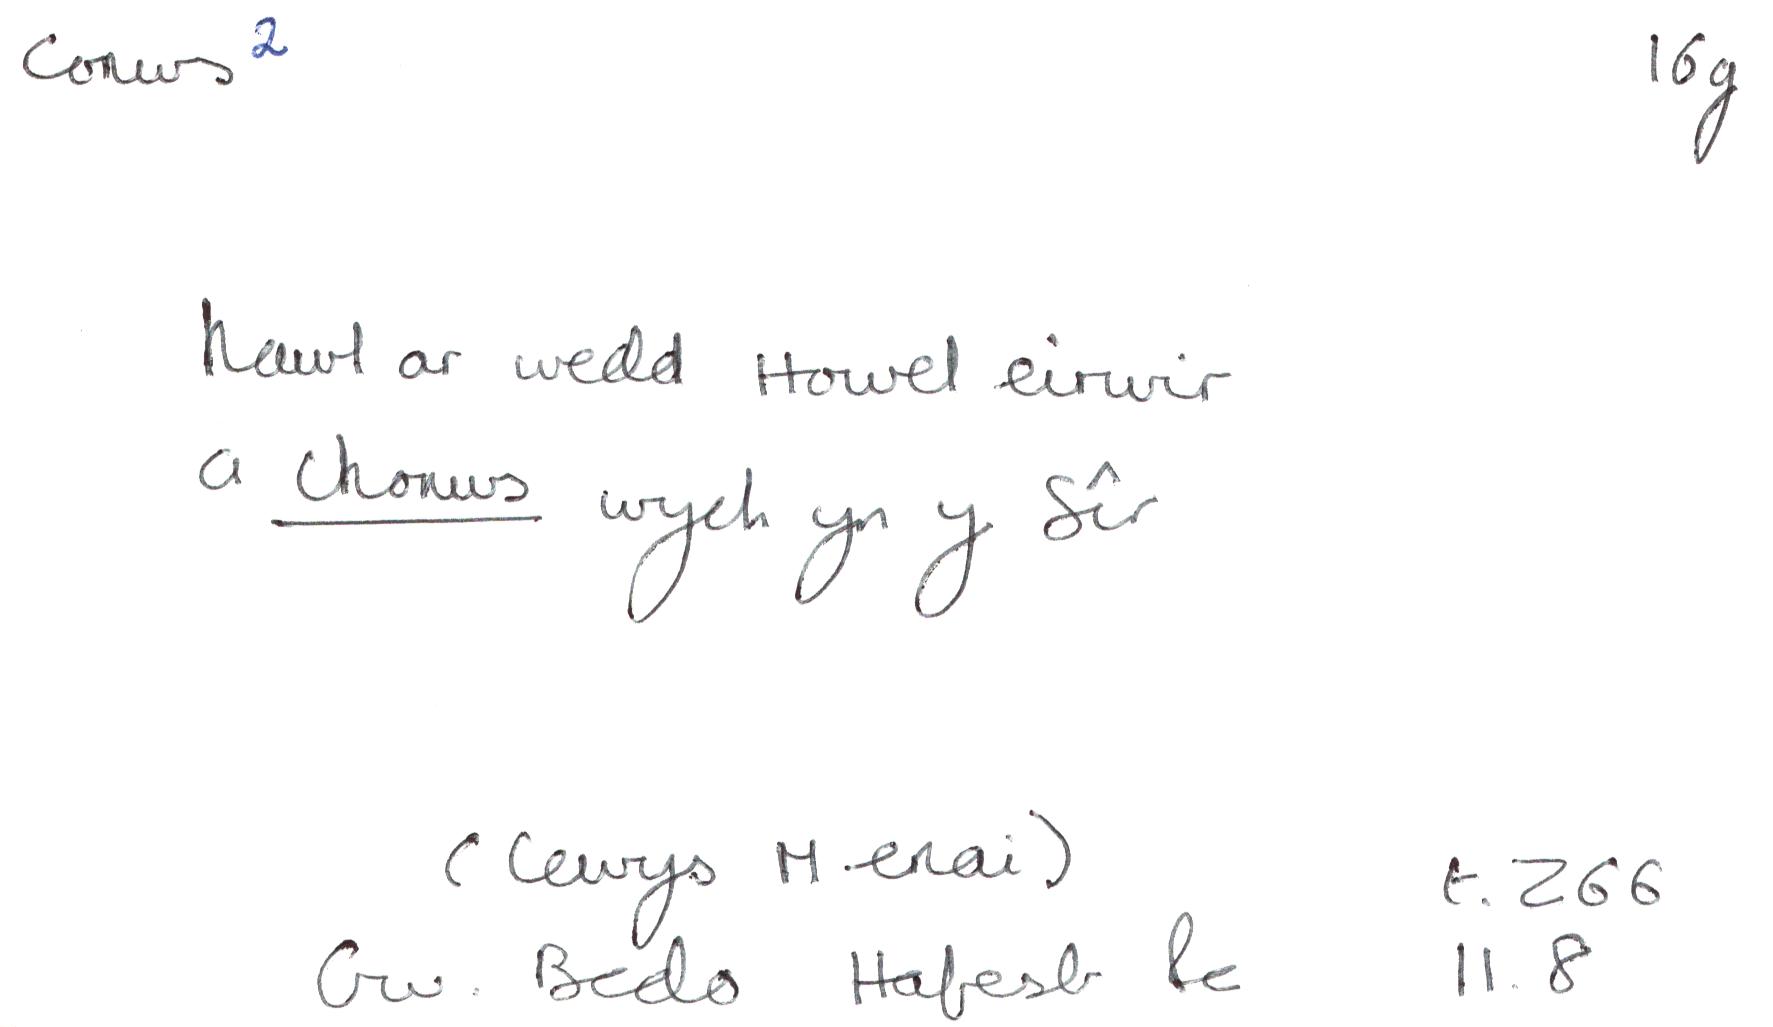 Conws² 16g
hawl ar wedd Howel eirwir
a Chonws wych yn y Sîr
(Lewys Menai) t. 266
Gw. Bedo Hafesb &c 11.8